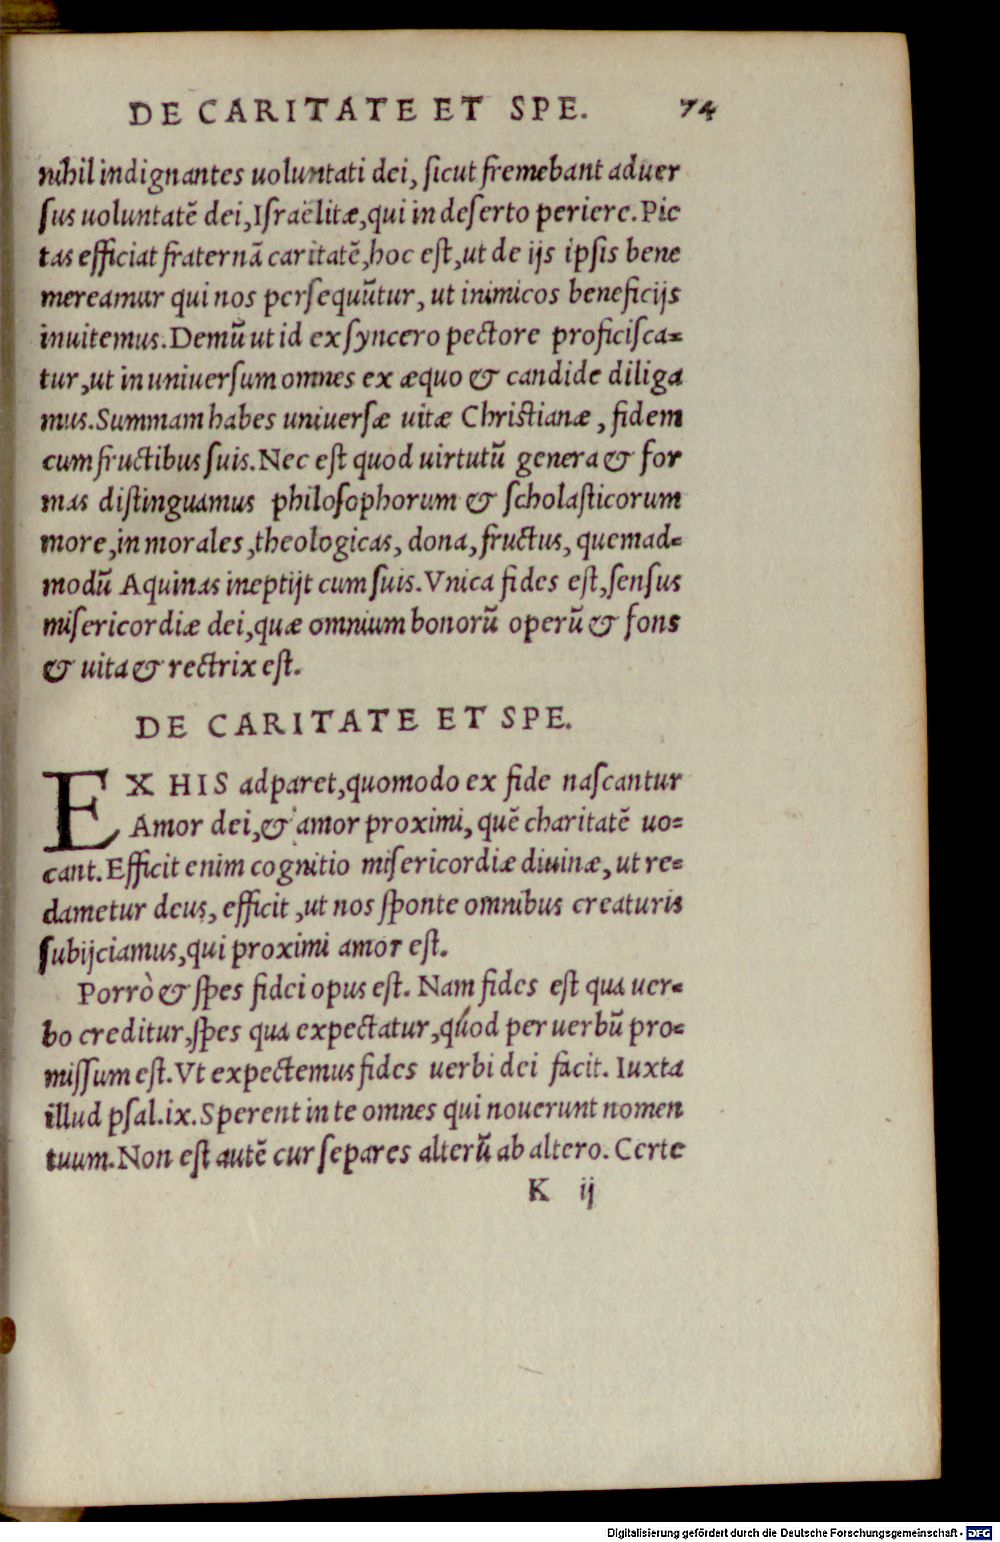 DE CARITATE ET SPE. 74
nihil indignantes uoluntati dei, ſicut fremebant aduer
ſus uoluntatē dei, Iſraëlitæ, qui in deſerto periere. Pie
tas efficiat fraternā caritatē, hoc eſt, ut de ijs ipſis bene
mereamur qui nos perſequūtur, ut inimicos beneficijs
inuitemus. Demū ut id ex ſyncero pectore proficiſca=
tur, ut in uniuerſum omnes ex æquo & candide diliga
mus. Summam habes uniuerſæ uitæ Christianæ, fidem
cum fructibus ſuis. Nec eſt quod uirtutū genera & for
mas diſtinguamus philoſophorum & ſcholaſticorum
more, in morales, theologicas, dona, fructus, quemad=
modū Aquinas ineptijt cum ſuis. Vnica fides eſt, ſenſus
miſericordiæ dei, quæ omnium bonorū operū & fons
& uita & rectrix eſt.
DE CARITATE ET SPE.
EX HIS adparet, quomodo ex fide naſcantur
Amor dei, & amor proximi, quē charitatē uo=
cant. Efficit enim cognitio miſericordiæ diuinæ, ut re=
dametur deus, efficit, ut nos ſponte omnibus creaturis
ſubijciamus, qui proximi amor eſt.
Porrò & ſpes fidei opus eſt. Nam fides eſt qua uer=
bo creditur, ſpes qua expectatur, quod per uerbū pro=
miſſum eſt. Vt expectemus fides uerbi dei facit. Iuxta
illud pſal. ix. Sperent in te omnes qui nouerunt nomen
tuum. Non eſt autē cur ſepares alterū ab altero. Certe
K ij
Digitalisierung gefördert durch die Deutsche Forschungsgemeinschaft - DFG